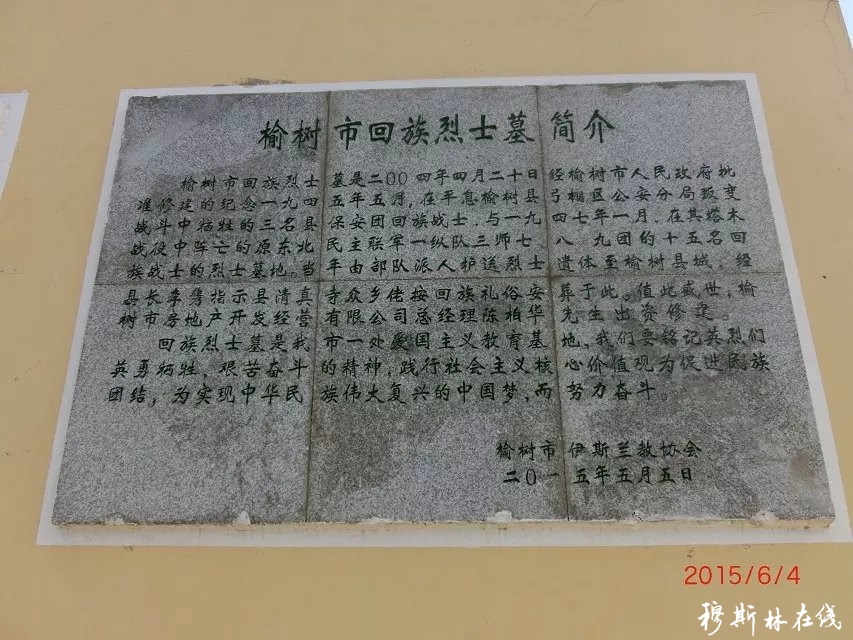 榆树市回族烈士墓简介
榆树市回族烈士墓是二00四年四月二十日经榆树市人民政府批
准修建的纪念一九四五年五月,在平息榆树县弓棚区公安分局叛变
战斗中牺牲的三名县保安团回族战士,与一九四七年一月,在其塔木
战役中阵亡的原东北民主联军一纵队三师七、八、九团的十五名回
族战士的烈士墓地。当年由部队派人护送烈士遗体至榆树县城,经
县长李隽指示县清真寺众乡佬按回族礼俗安葬于此。值此盛世,榆
树市房地产开发经营有限公司总经理陈柏华先生出资修建。
回族烈士墓是我市一处爱国主义教育基地,我们要铭记英烈们
英勇牺牲,艰苦奋斗的精神,践行社会主义核心价值观为促进民族
团结,为实现中华民族伟大复兴的中国梦,而努力奋斗。
榆树市伊斯兰教协会
二0一五年五月五日
2015/6/4
穆斯林在线